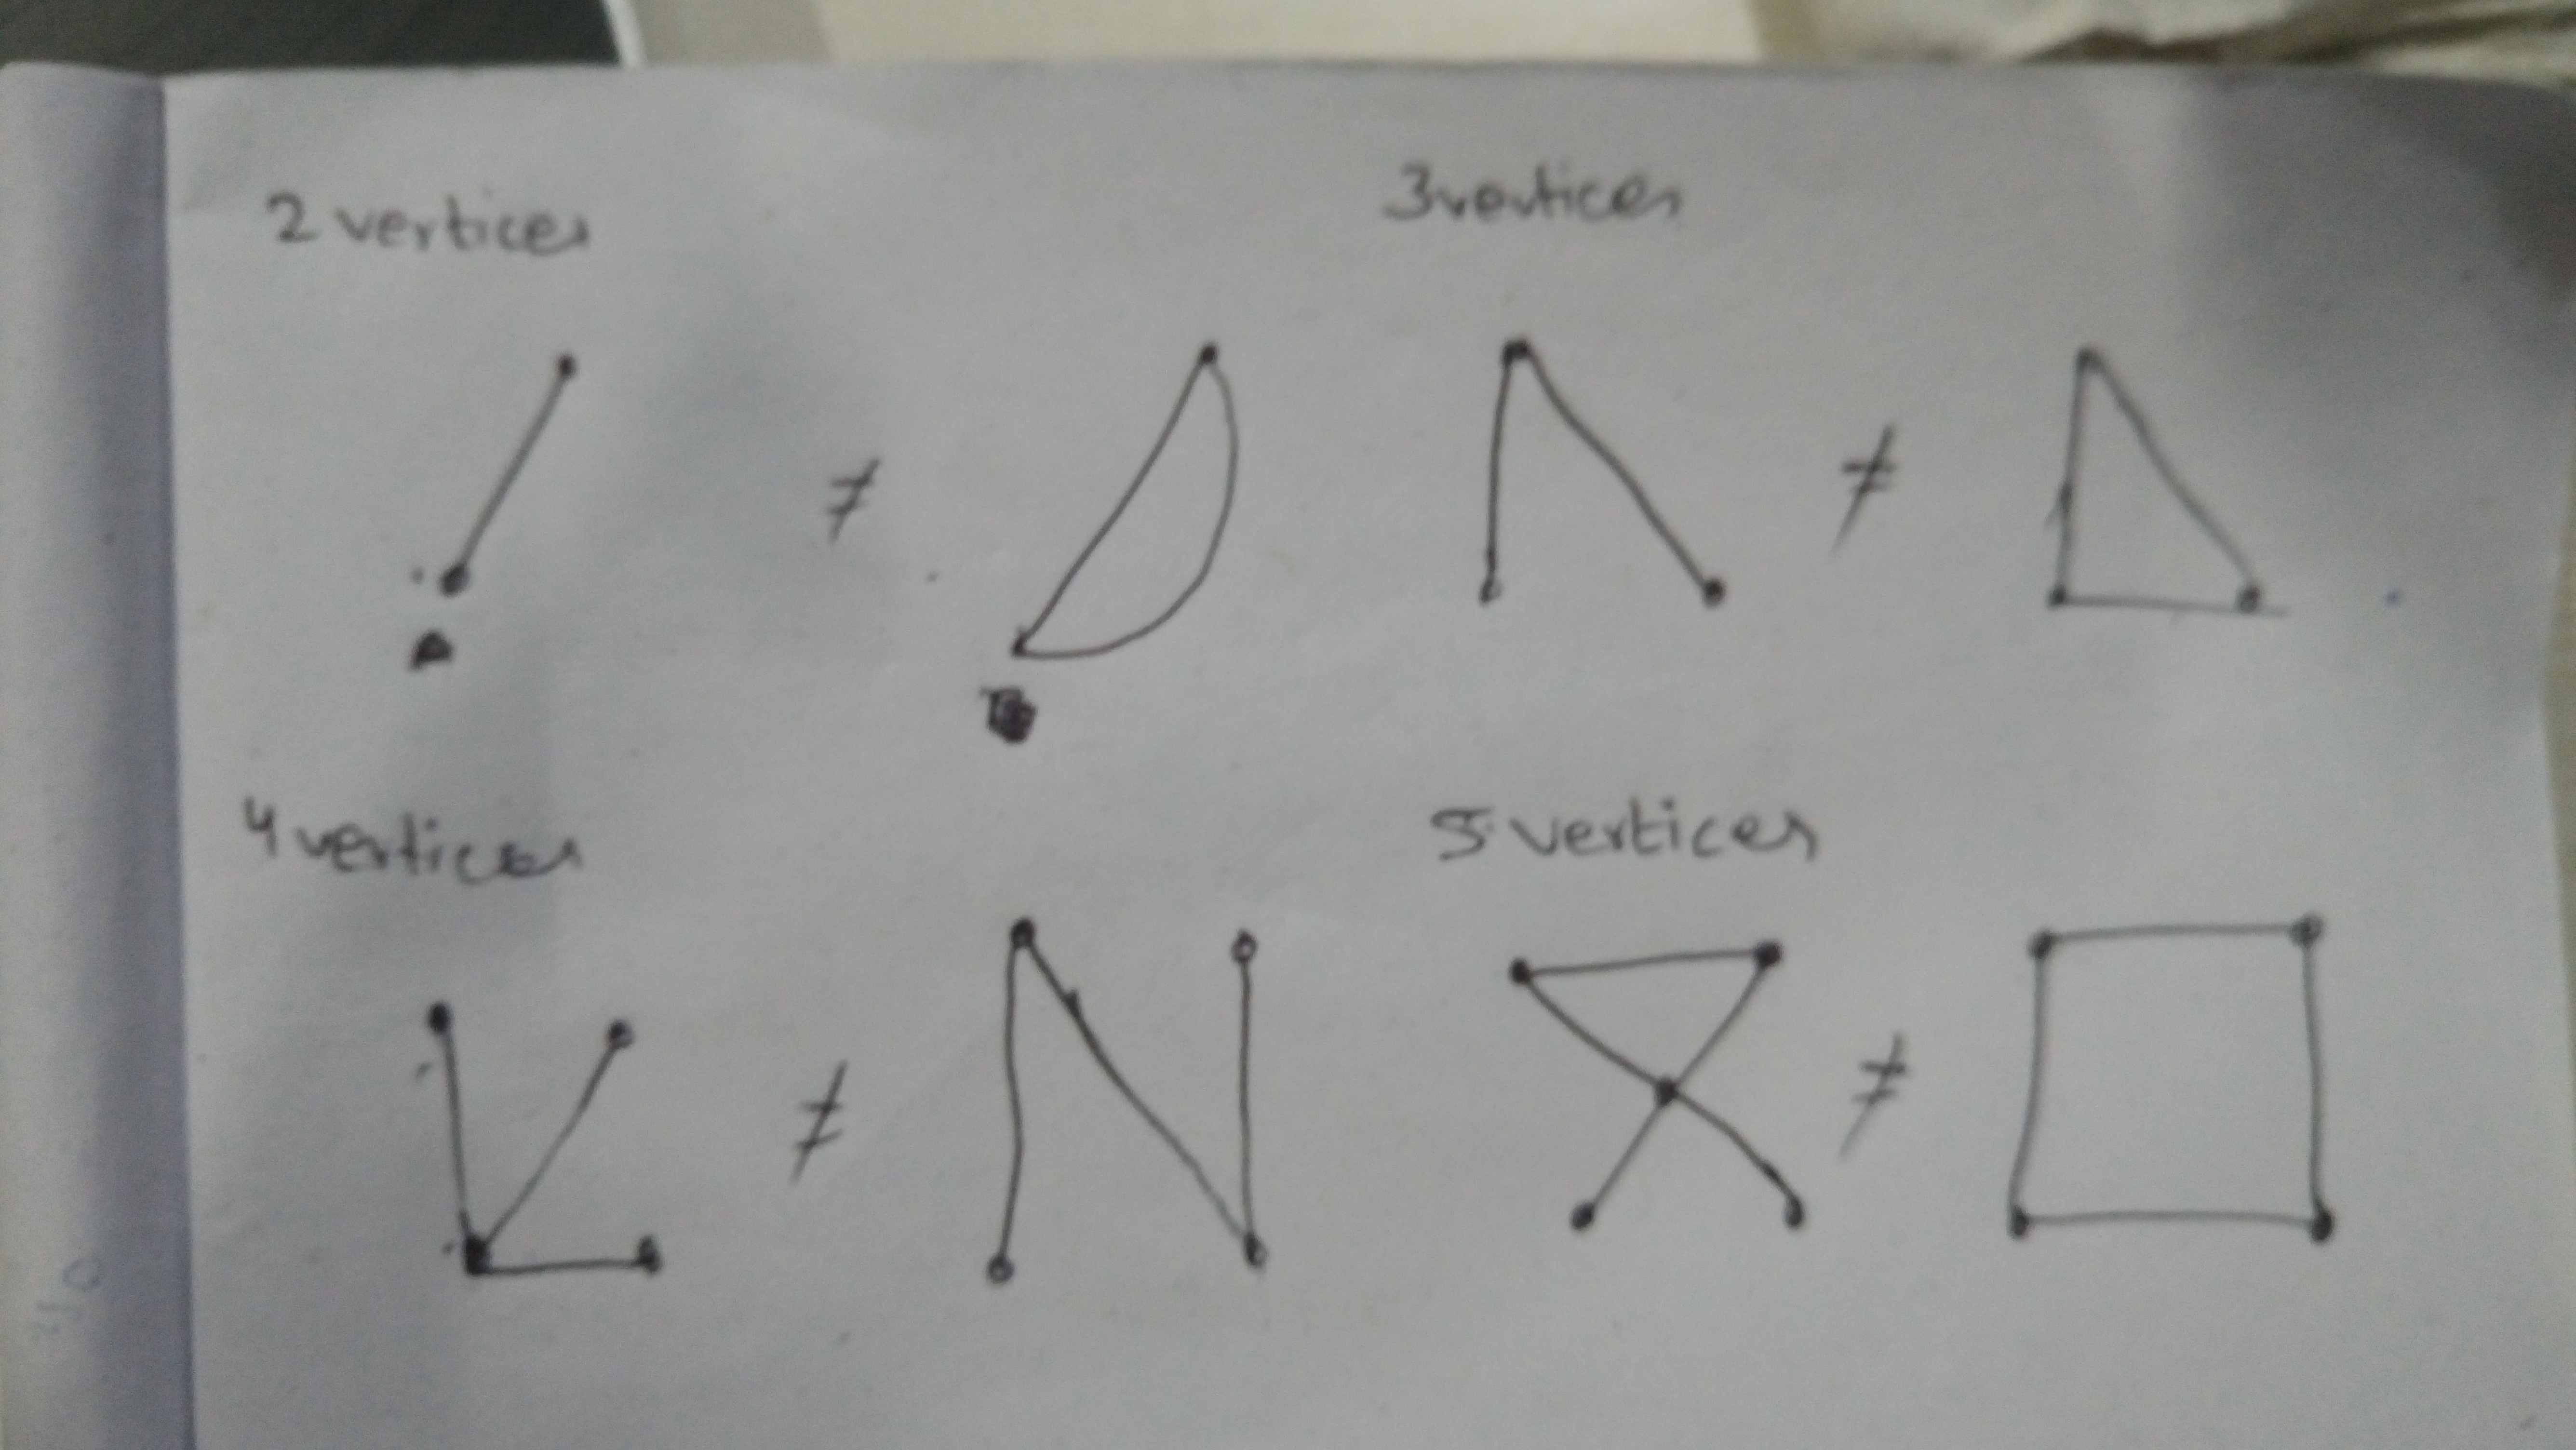 2 vertices
3 vertices
≠
≠
4 vertices
5 vertices
≠
≠